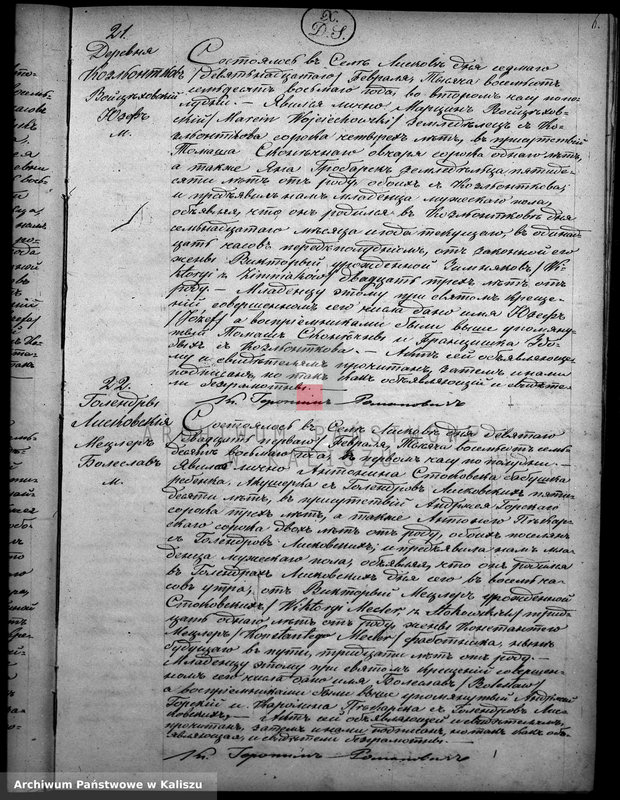 X.
D.S.
6.
21.
Деревня
Козьмонтковъ
Войцѣховскій
Юзефъ
м.
Состоялось въ Селѣ Лисковъ дня седмаго
/девятнадцатаго/ Февраля, Тысяча восемьсотъ
семьдесятъ восьмаго года, во второмъ часу попо-
лудни. — Явился лично Марцинъ Войцѣхов-
скій /Marcin Wojciechowski/ земледѣлецъ съ Ко-
зьмонткова сорока четырехъ лѣтъ, въ присутствіи
Томаша овчаря сорока одного лѣтъ,
а также Яна земледѣльца пятиде-
сяти лѣтъ отъ роду, обоихъ съ Козьмонткова,
и предъявилъ намъ младенца мужескаго пола,
объявляя, что онъ родился въ Козьмонтковѣ дня
семьнадцатаго мѣсяца и года текущаго, въ одинад-
цать часовъ передъ полуднемъ, отъ законной его
жены Викторыи урожденной Зимняковъ /Wi-
ktoryi z Zimniaków/ двадцать трехъ лѣтъ отъ
роду. — Младенцу этому при святомъ креще-
ніи совершенномъ сего числа дано имя Юзефъ
/Józef/ а воспріемниками были выше упомяну-
тый Томашъ и Францишка
съ Козьмонткова. — Актъ сей объявляюще-
му и свидѣтелямъ прочитанъ, затѣмъ нами
подписанъ, но такъ какъ объявляющій и свидѣте-
ли безграмотны. —
Кс. Геронимъ Романовичъ
22.
Голендры
Лисковскія
Мецлеръ
Болеславъ
м.
Состоялось въ Селѣ Лисковъ дня девятаго
/двадцать перваго/ Февраля, Тысяча восемьсотъ семь-
десятъ восьмаго года, въ первомъ часу по полудни. —
Явилась лично Антонина Стоковска бабушка
ребенка, Акушерка съ Голендровъ Лисковскихъ пяти-
десяти лѣтъ, въ присутствіи Андржея Горскаго
сорока трехъ лѣтъ, а также Антонего
скаго сорока двохъ лѣтъ отъ роду, обоихъ поселянъ
съ Голендровъ Лисковскихъ, и предъявила намъ мла-
денца мужескаго пола, объявляя, что онъ родился
въ Голендрахъ Лисковскихъ дня сего въ восемь ча-
совъ утра, отъ Викторыи Мецлеръ урожденной
Стоковскихъ /Wiktoryi Mecler z Stokowskich/ трид-
цать одного лѣтъ отъ роду, жены Константего
Мецлеръ /Konstantego Mecler/ работника, нынѣ
будущаго въ пути, тридцати лѣтъ отъ роду. —
Младенцу этому при святомъ крещеніи совершен-
номъ сего числа дано имя Болеславъ /Bolesław/
а воспріемниками были выше упомянутый Андржей
Горскій и Каролина съ Голендровъ Лис-
ковскихъ. — Актъ сей объявляющей и свидѣтелямъ
прочитанъ, затѣмъ нами подписанъ, но такъ какъ объ-
являющая, и свидѣтели безграмотны. —
Кс. Геронимъ Романовичъ
Archiwum Państwowe w Kaliszu